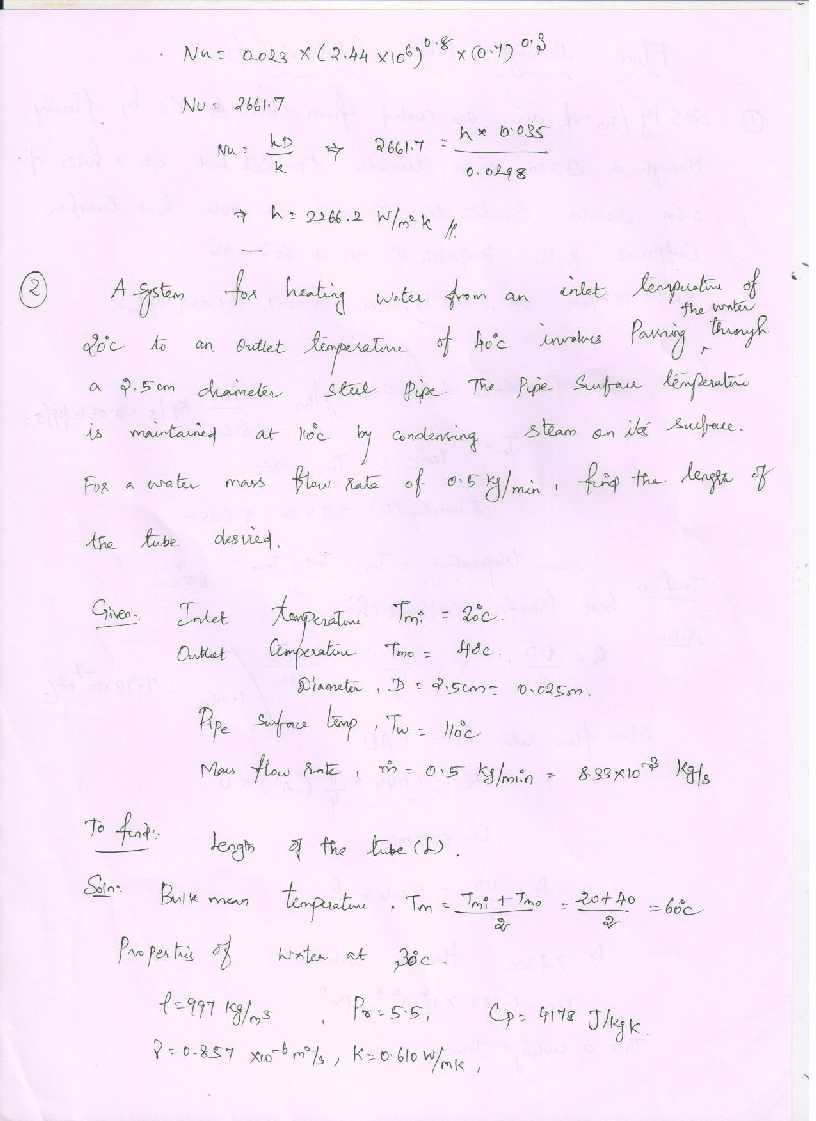 Nu = 0.023 × (2.44 × 10⁶)^0.8 × (0.7)^0.3
Nu = 2661.7
Nu = hD/k ⇒ 2661.7 = h × 0.035 / 0.0298
⇒ h = 2266.2 W/m²k //.
② A system for heating water from an inlet temperature of
20°c to an outlet temperature of 40°c involves Passing the water through
a 2.5cm diameter steel pipe. The Pipe Surface temperature
is maintained at 110°c by condensing steam on its surface.
For a water mass flow rate of 0.5 kg/min, find the length of
the tube desired.
Given:- Inlet temperature Tmi = 20°c.
Outlet temperature Tmo = 40°c.
Diameter, D = 2.5cm = 0.025m.
Pipe surface temp, Tw = 110°c
Mass flow rate, ṁ = 0.5 kg/min = 8.33×10⁻³ Kg/s
To find:- Length of the tube (L).
Soln:- Bulk mean temperature, Tm = (Tmi + Tmo)/2 = (20+40)/2 = 60°c
Properties of water at 30°c.
ρ = 997 kg/m3, Pr = 5.5, Cp = 4178 J/kgk.
ν = 0.857 ×10⁻⁶ m²/s, K = 0.610 W/mk,